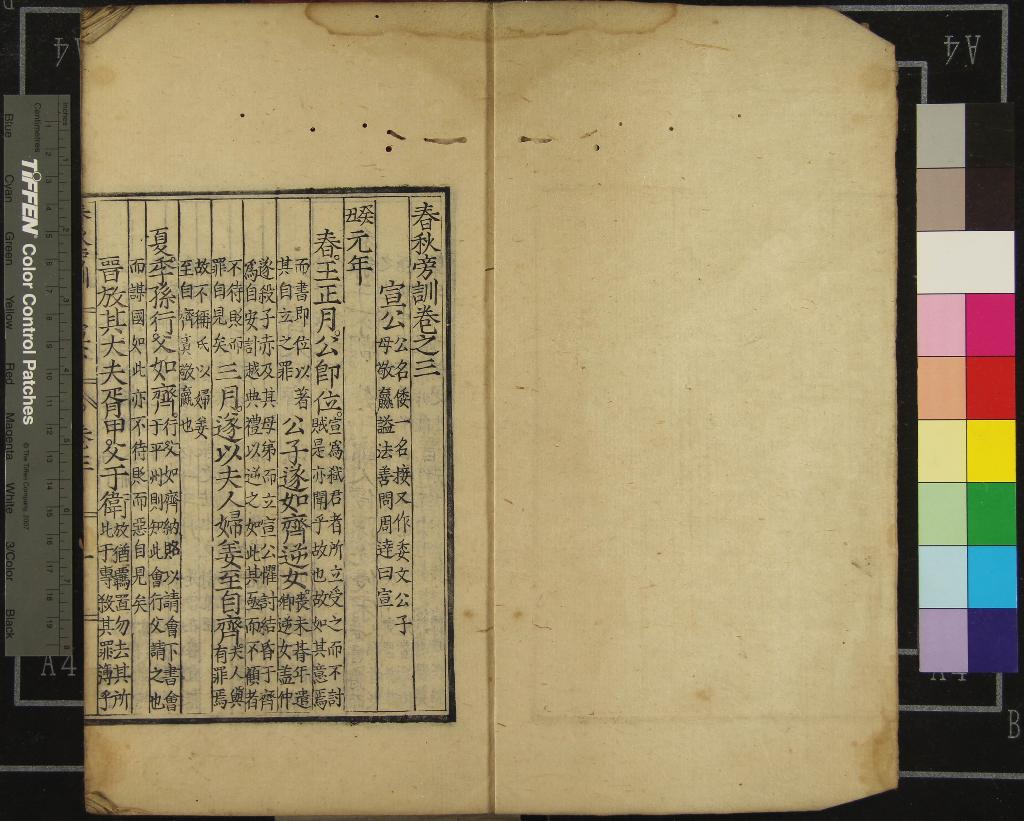 春秋旁訓卷之三
宣公
公名倭一名接又作委文公子
母敬嬴謚法善問周達曰宣
癸丑元年
春王正月公即位
宣為弒君者所立受之而不討
賊是亦聞乎故也故如其意焉
而書即位以著
其自立之罪
公子遂如齊逆女
喪未朞年遣
卿逆女蓋仲
遂殺子赤及其母弟而立宣公懼討結昏于齊
為自安計越典禮以逆之如此其亟而不顧者
不待貶而
罪自見矣
三月遂以夫人婦姜至自齊
夫人與
有罪焉
故不稱氏以婦姜
至自齊責敬嬴也
夏季孫行父如齊
行父如齊納賂以請會下書會
于平州則知此會行父請之也
而謀國如此亦不待貶而惡自見矣
晉放其大夫胥甲父于衛
放猶羈置勿去其所
比于專殺其罪薄乎
TIFFEN Color Control Patches
© The Tiffen Company, 2007
Inches
Centimetres
Blue Cyan Green Yellow Red Magenta White 3/Color Black
A4
A4
A4
A4
B